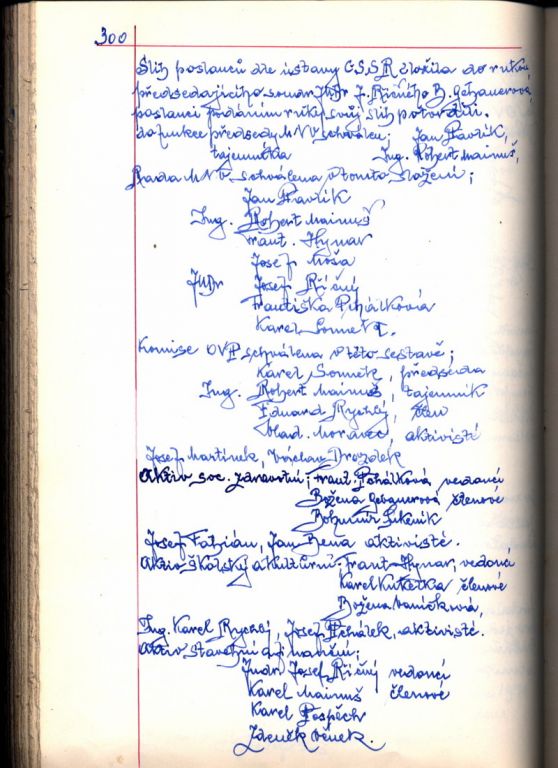 300
Slib poslanců dle ústavy ČSSR složila do rukou
předsedajícího soudr. JUDr J. Říčného B. Gebauerová
poslanci podáním ruky svůj slib potvrdili.
do funkce předsedy MNV schválen; Jan Pavlík,
tajemníka Ing. Robert Mainuš,
Rada MNV schválena v tomto složení;
Jan Pavlík
Ing. Robert Mainuš
Frant. Hynar
Josef
JUDr Josef Říčný
Františka Pchálková
Karel
Komise OVP schválena v této sestavě;
Karel předseda
Ing. Robert Mainuš, tajemník
Eduard Rychlý, člen
Vlad. Moravec, aktivisté
Josef Martinek, Václav Drozdek
Aktiv soc. zdravotní; Frant. Pchálková vedoucí
Božena Gebauerová členové
Bohumír
Josef Fabián, Jan aktivisté.
Aktiv školský a kulturní: Frant Hynar, vedoucí
Karel Kuketka členové
Božena Vaníčková,
Ing. Karel Rychlý, Josef Pchálek, aktivisté.
Aktiv stavební a finanční;
Judr Josef Říčný vedoucí
Karel Mainuš členové
Karel Pospěch
Zdeněk